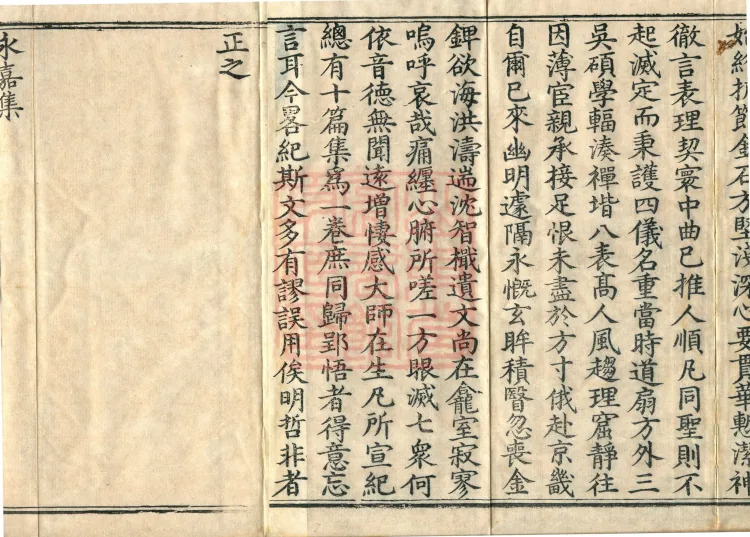 始終抗節金石方堅淺深心要貫華慙潔神
徹言表理契寰中曲己推人順凡同聖則不
起滅定而秉護四儀名重當時道扇方外三
吳碩學輻湊禪堦八表髙人風趨理窟靜往
因薄宦親承接足恨未盡於方寸俄赴京畿
自爾已來幽明遽隔永慨玄眸積瞖忽喪金
錍欲海洪濤遄沈智檝遺文尚在龕室寂寥
嗚呼哀哉痛纏心腑所嗟一方眼滅七衆何
依音德無聞遠增悽感大師在生凡所宣紀
總有十篇集爲一卷庶同歸郢悟者得意忘
言耳今畧紀斯文多有謬誤用俟明哲非者
正之
永嘉集